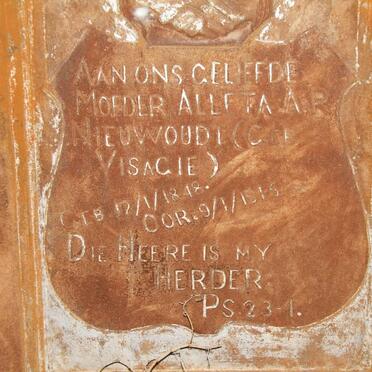 AAN ONS GELIEFDE
MOEDER ALLETA A.P.
NIEUWOUDT (GEB
VISAGIE)
GEB 12/1/1848.
OOR. 9/1/
DIE HEERE IS MY
HERDER.
PS 23-1.